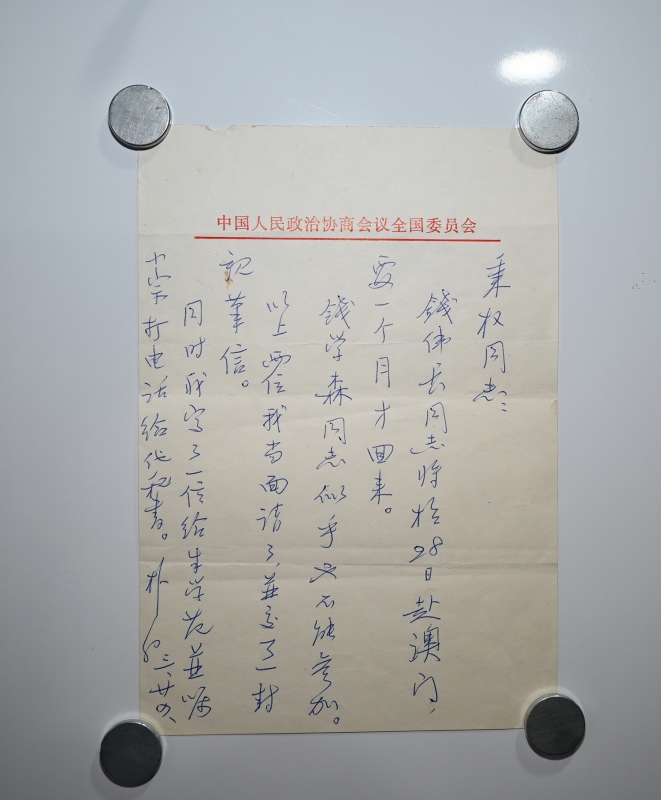 中国人民政治协商会议全国委员会
秉权同志：
钱伟长同志将于28日赴澳门，
要一个月才回来。
钱学森同志似乎也不能参加。
以上两位我当面请了，并交了一封
记者信。
同时我写了一信给朱学范并嘱
宗打电话给他秘书。朴 三、廿四、